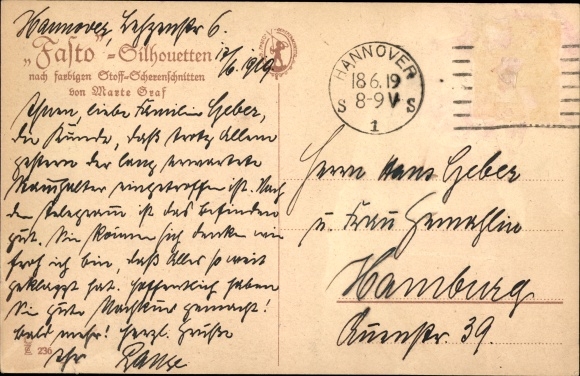 Hannover, 6.
17/6 1919
„Fasto“-Silhouetten
nach farbigen Stoff-Scherenschnitten
von Marte Graf
Ihnen, liebe Familie Geber,
die Kunde, daß trotz Allem
gestern der lang erwartete
eingetroffen ist. Nach
dem Telegramm ist das Befinden
gut. Sie können sich denken wie
froh ich bin, daß Alles so weit
geklappt hat. Hoffentlich haben
Sie gute gemacht!
Bald mehr! Herzl. Grüße
Ihr Lange
236
HANNOVER
18.6.19
8-9V
S S
1
Herrn Hans Geber
u. Frau Gemahlin
Hamburg
Auenstr. 39.